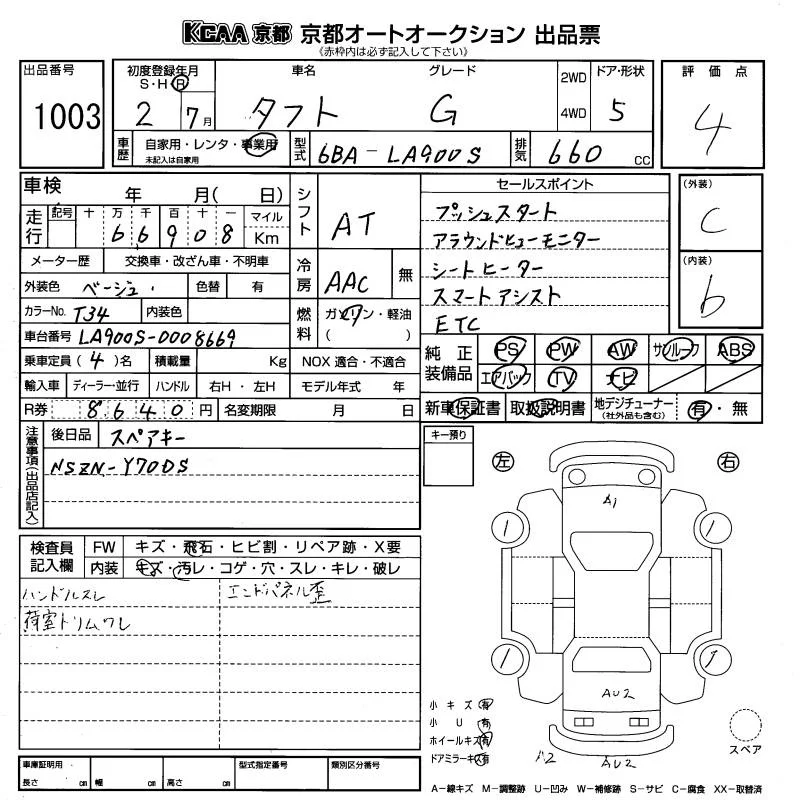 KCAA 京都 京都オートオークション 出品票
《赤枠内は必ず記入して下さい》
出品番号
1003
初度登録年月
S・H・R
2 7月
車名
タフト
グレード
G
2WD
4WD
ドア・形状
5
評価点
4
車歴
自家用・レンタ・事業用
未記入は自家用
型式
6BA-LA900S
排気
660 cc
車検 年 月( 日)
走行
記号 十 万 千 百 十 一
6 6 9 0 8
マイル
Km
メーター歴 交換車・改ざん車・不明車
外装色 ベージュ 色替 有
カラーNo. T34 内装色
車台番号 LA900S-0008669
乗車定員 (4)名 積載量 Kg
輸入車 ディーラー・並行 ハンドル 右H・左H
R券 8640円 名変期限 月 日
シフト
AT
冷房
AAC 無
燃料
ガソリン・軽油
( )
NOX 適合・不適合
モデル年式 年
セールスポイント
プッシュスタート
アラウンドビューモニター
シートヒーター
スマートアシスト
ETC
(外装)
C
(内装)
b
純正装備品
PS PW AW サンルーフ ABS
エアバック TV ナビ
新車保証書 取扱説明書 地デジチューナー
(社外品も含む)
有・無
注意事項(出品店記入)
後日品 スペアキー
NSZN-Y70DS
キー預り
左
右
検査員記入欄
FW キズ・飛石・ヒビ割・リペア跡・X要
内装 キズ・汚レ・コゲ・穴・スレ・キレ・破レ
ハンドルスレ
荷室トリムワレ
エンドパネル歪
A1
AU2
AU2
A2
小キズ 有
小U 有
ホイールキズ 有
ドアミラーキズ 有
スペア
車庫証明用
長さ cm 幅 cm 高さ cm
型式指定番号
類別区分番号
A−線キズ M−調整跡 U−凹み W−補修跡 S−サビ C−腐食 XX−取替済